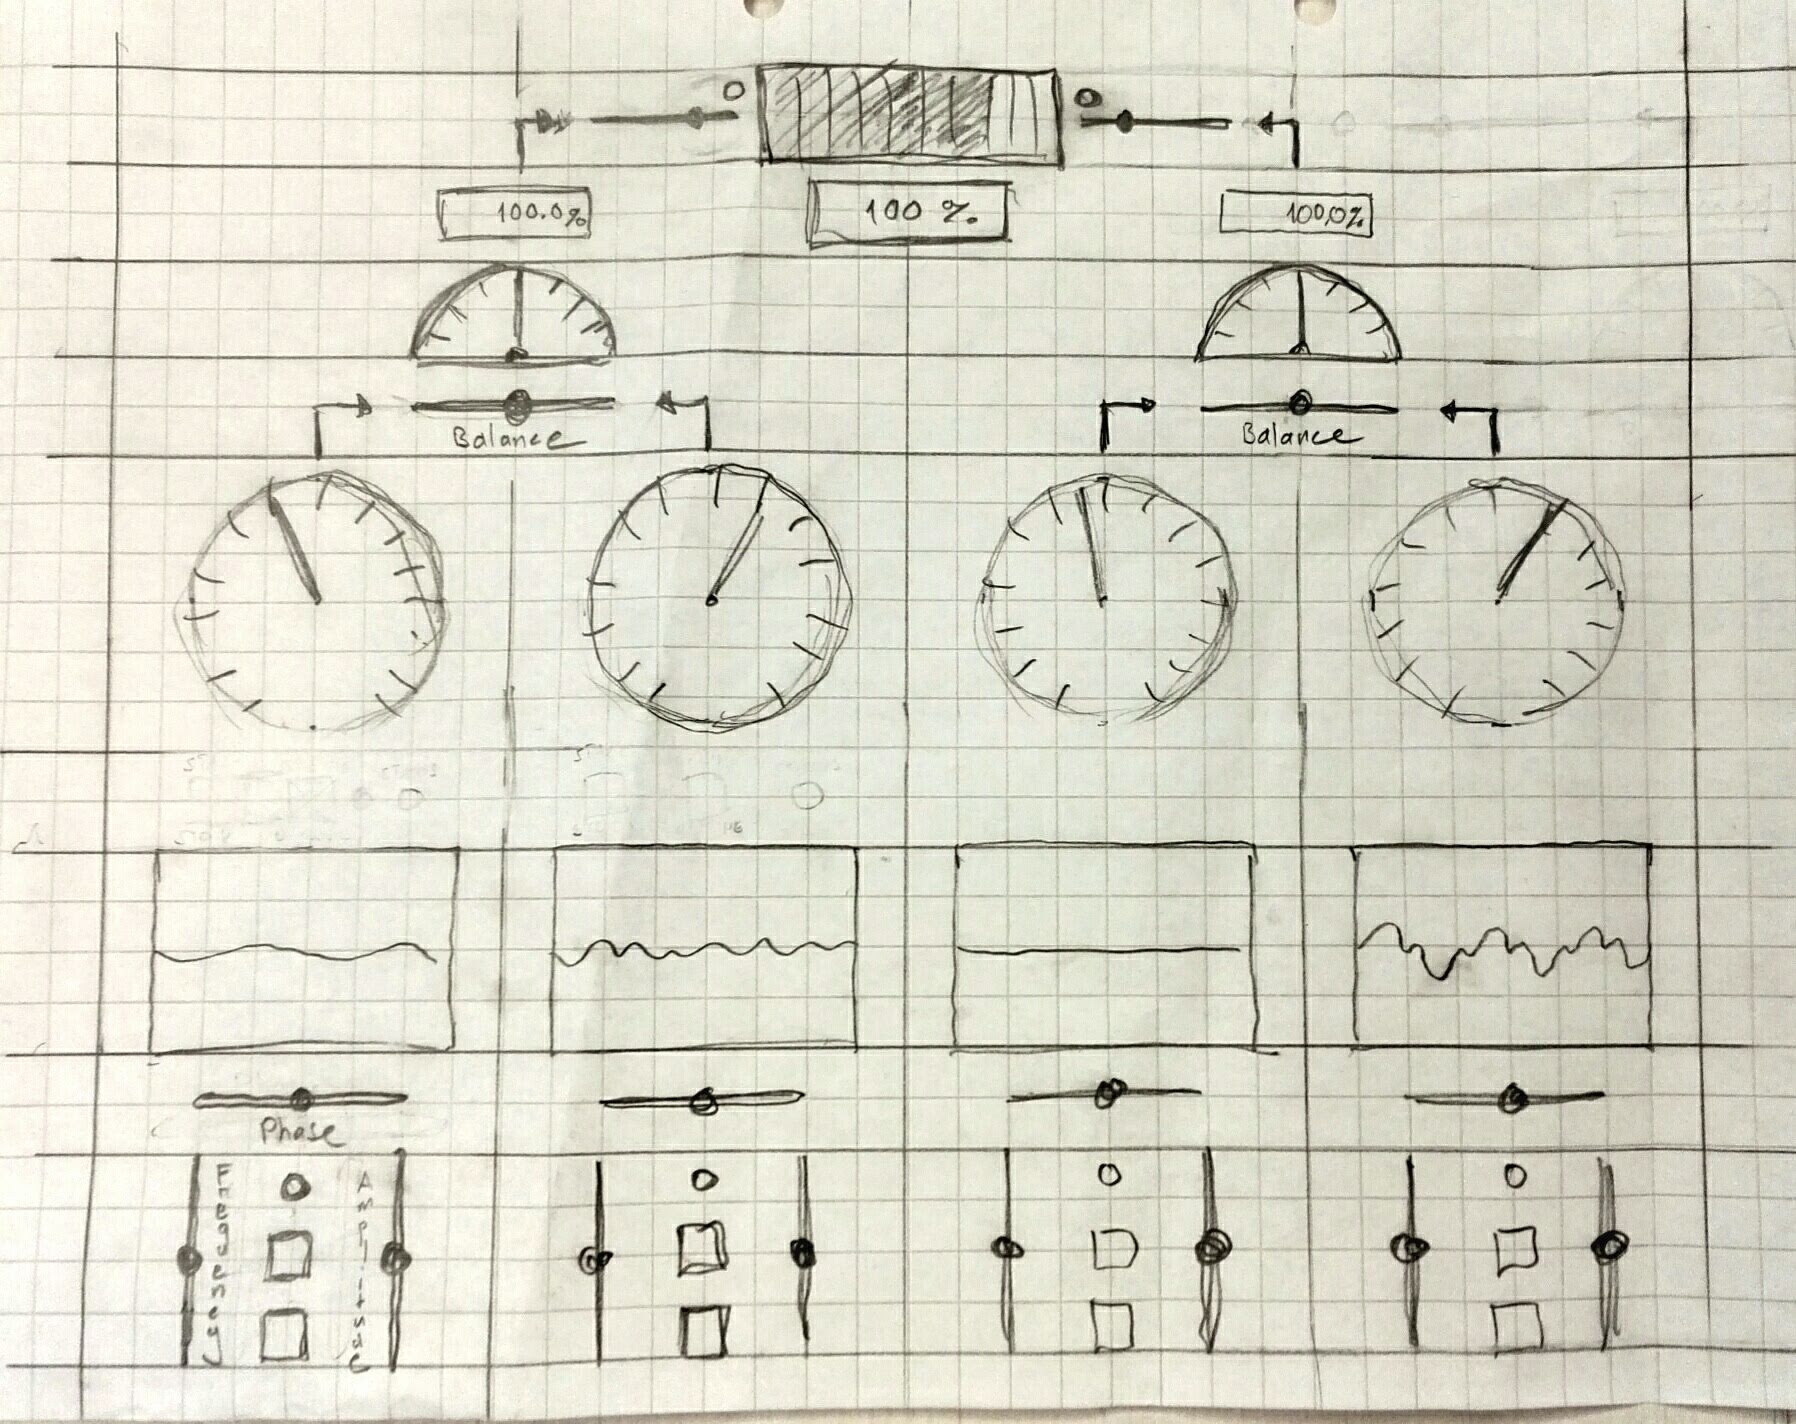 100.0%
100 %
100.0%
Balance
Balance
Phase
Frequency